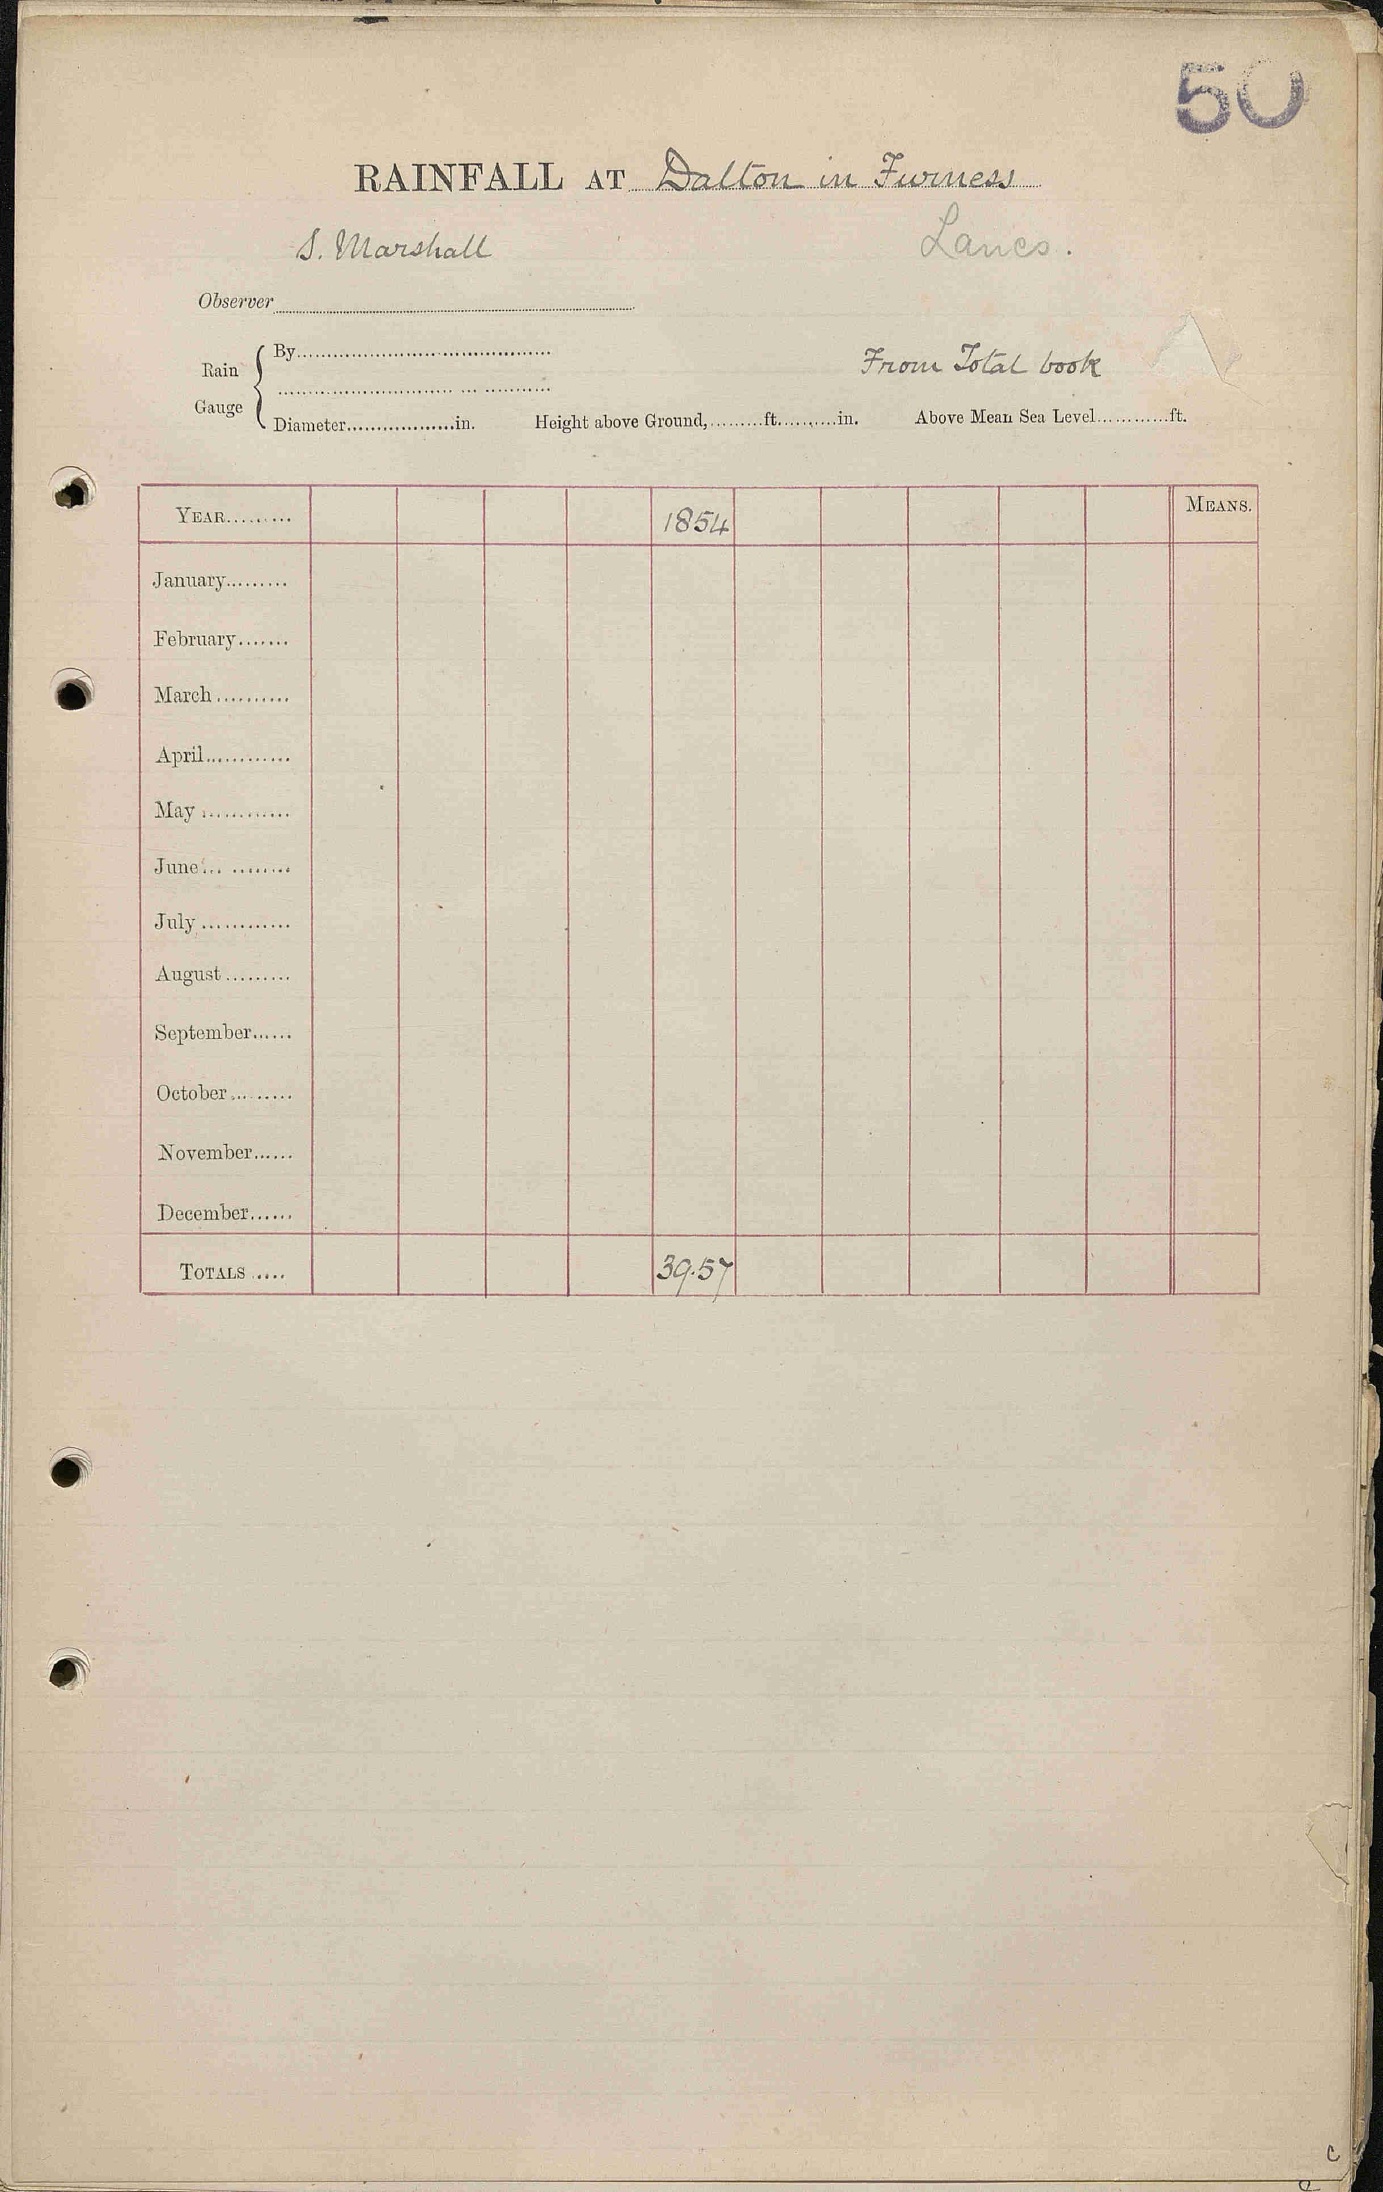 50
RAINFALL AT Dalton in Furness
S. Marshall Lancs.
Observer
Rain Gauge { By
From Total book
Diameter in. Height above Ground, ft. in. Above Mean Sea Level ft.
YEAR 1854 MEANS.
January
February
March
April
May
June
July
August
September
October
November
December
TOTALS 39.57
c